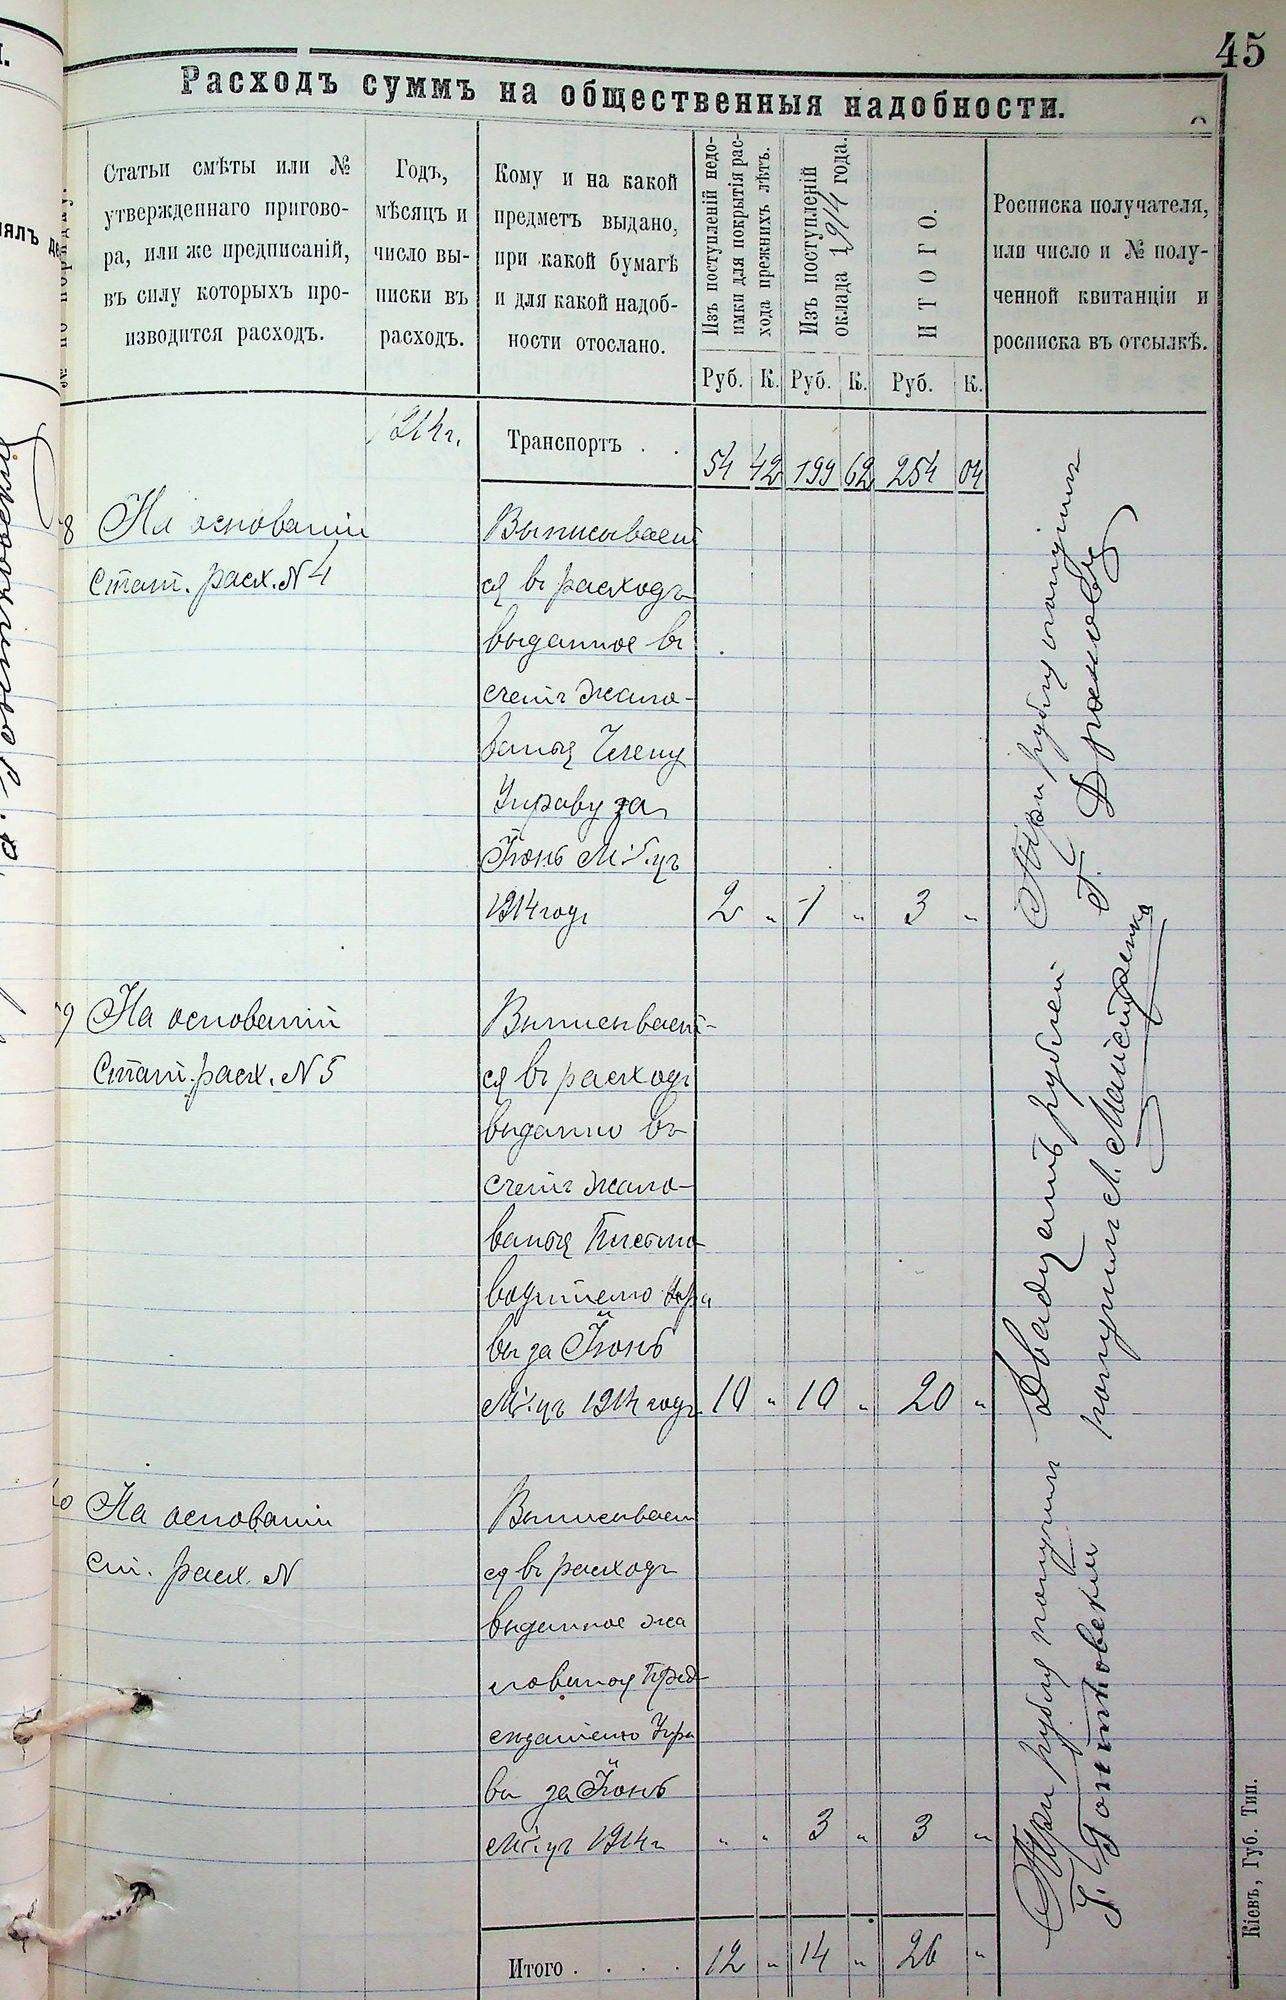 45
Расходъ суммъ на общественныя надобности.
№ по порядку.
Статьи смѣты или №
утвержденнаго пригово-
ра, или же предписаній,
въ силу которыхъ про-
изводится расходъ.
Годъ,
мѣсяцъ и
число вы-
писки въ
расходъ.
Кому и на какой
предметъ выдано,
при какой бумагѣ
и для какой надоб-
ности отослано.
Изъ поступленій недо-
имки для покрытія рас-
хода прежнихъ лѣтъ.
Изъ поступленій
оклада 1914 года.
ИТОГО.
Росписка получателя,
или число и № полу-
ченной квитанціи и
росписка въ отсылкѣ.
Руб. К. Руб. К. Руб. К.
1914 г. Транспортъ . . 54 42 199 62 254 04
8 На основаніи Выписывает
Стат. расх. N 4 ся въ расходъ
выданное въ
счетъ жало-
ванья Члену
Управы за
Іюнь М-цъ
1914 годъ 2 " 1 " 3 "
Три рубли получилъ
Г.
9 На основаніи Выписывает-
Стат. расх. N 5 ся въ расходъ
выданно въ
счетъ жало-
ванья Письмо
водителю Упра
вы за Іюнь
М-цъ 1914 годъ 10 " 10 " 20 "
Двадцать рублей
получилъ Л.
На основаніи Выписывает
ст. расх. N ся въ расходъ
выданное жа
лованья Пред
сѣдателю Упра
вы за Іюнь
М-цъ 1914 г " " 3 " 3 "
Три рубля получилъ
Г. Гонтковскій
Итого . . . . 12 " 14 " 26 "
Кіевъ, Губ. Тип.